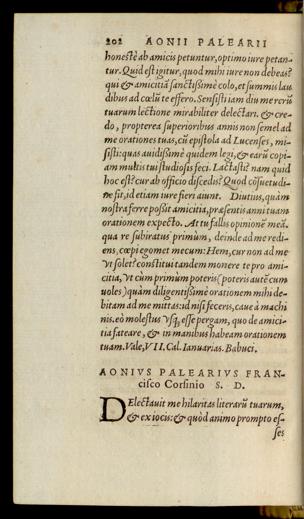 202 AONII PALEARII
honestè ab amicis petuntur, optimo iure petan-
tur. Quid est igitur, quod mihi iure non debeas?
qui & amicitiā sanctißimè colo, et summis lau
dibus ad cœlū te effero. Sensisti iam diu me rerū
tuarum lectione mirabiliter delectari. & cre-
do, propterea superioribus annis non semel ad
me orationes tuas, cū epistola ad Lucenses, mi-
sisti: quas auidißimè quidem legi, & earū copi-
am multis tui studiosis feci. Lactasti? nam quid
hoc est? cur ab officio discedis? Quod cōsuetudi-
ne fit, id etiam iure fieri aiunt. Diutius, quàm
nostra ferre poßit amicitia, præsentis anni tuam
orationem expecto. At tu fallis opinionē meā.
qua re subiratus primùm, deinde ad me redi-
ens, cœpi egomet mecum: Hem, cur non ad me
vt solet? constitui tandem monere te pro ami-
citia, vt cùm primùm poteris (poteris autē cum
uoles) quàm diligentißimè orationem mihi de-
bitam ad me mittas: id nisi feceris, caue à machi
nis. eò molestus vsq; esse pergam, quo de amici-
tia fateare, & in manibus habeam orationem
tuam. Vale, VII. Cal. Ianuarias. Babuci.
AONIVS PALEARIVS FRAN-
cisco Corsinio S. D.
DElectauit me hilaritas literarū tuarum,
& ex iocis: & quòd animo prompto es-
ses